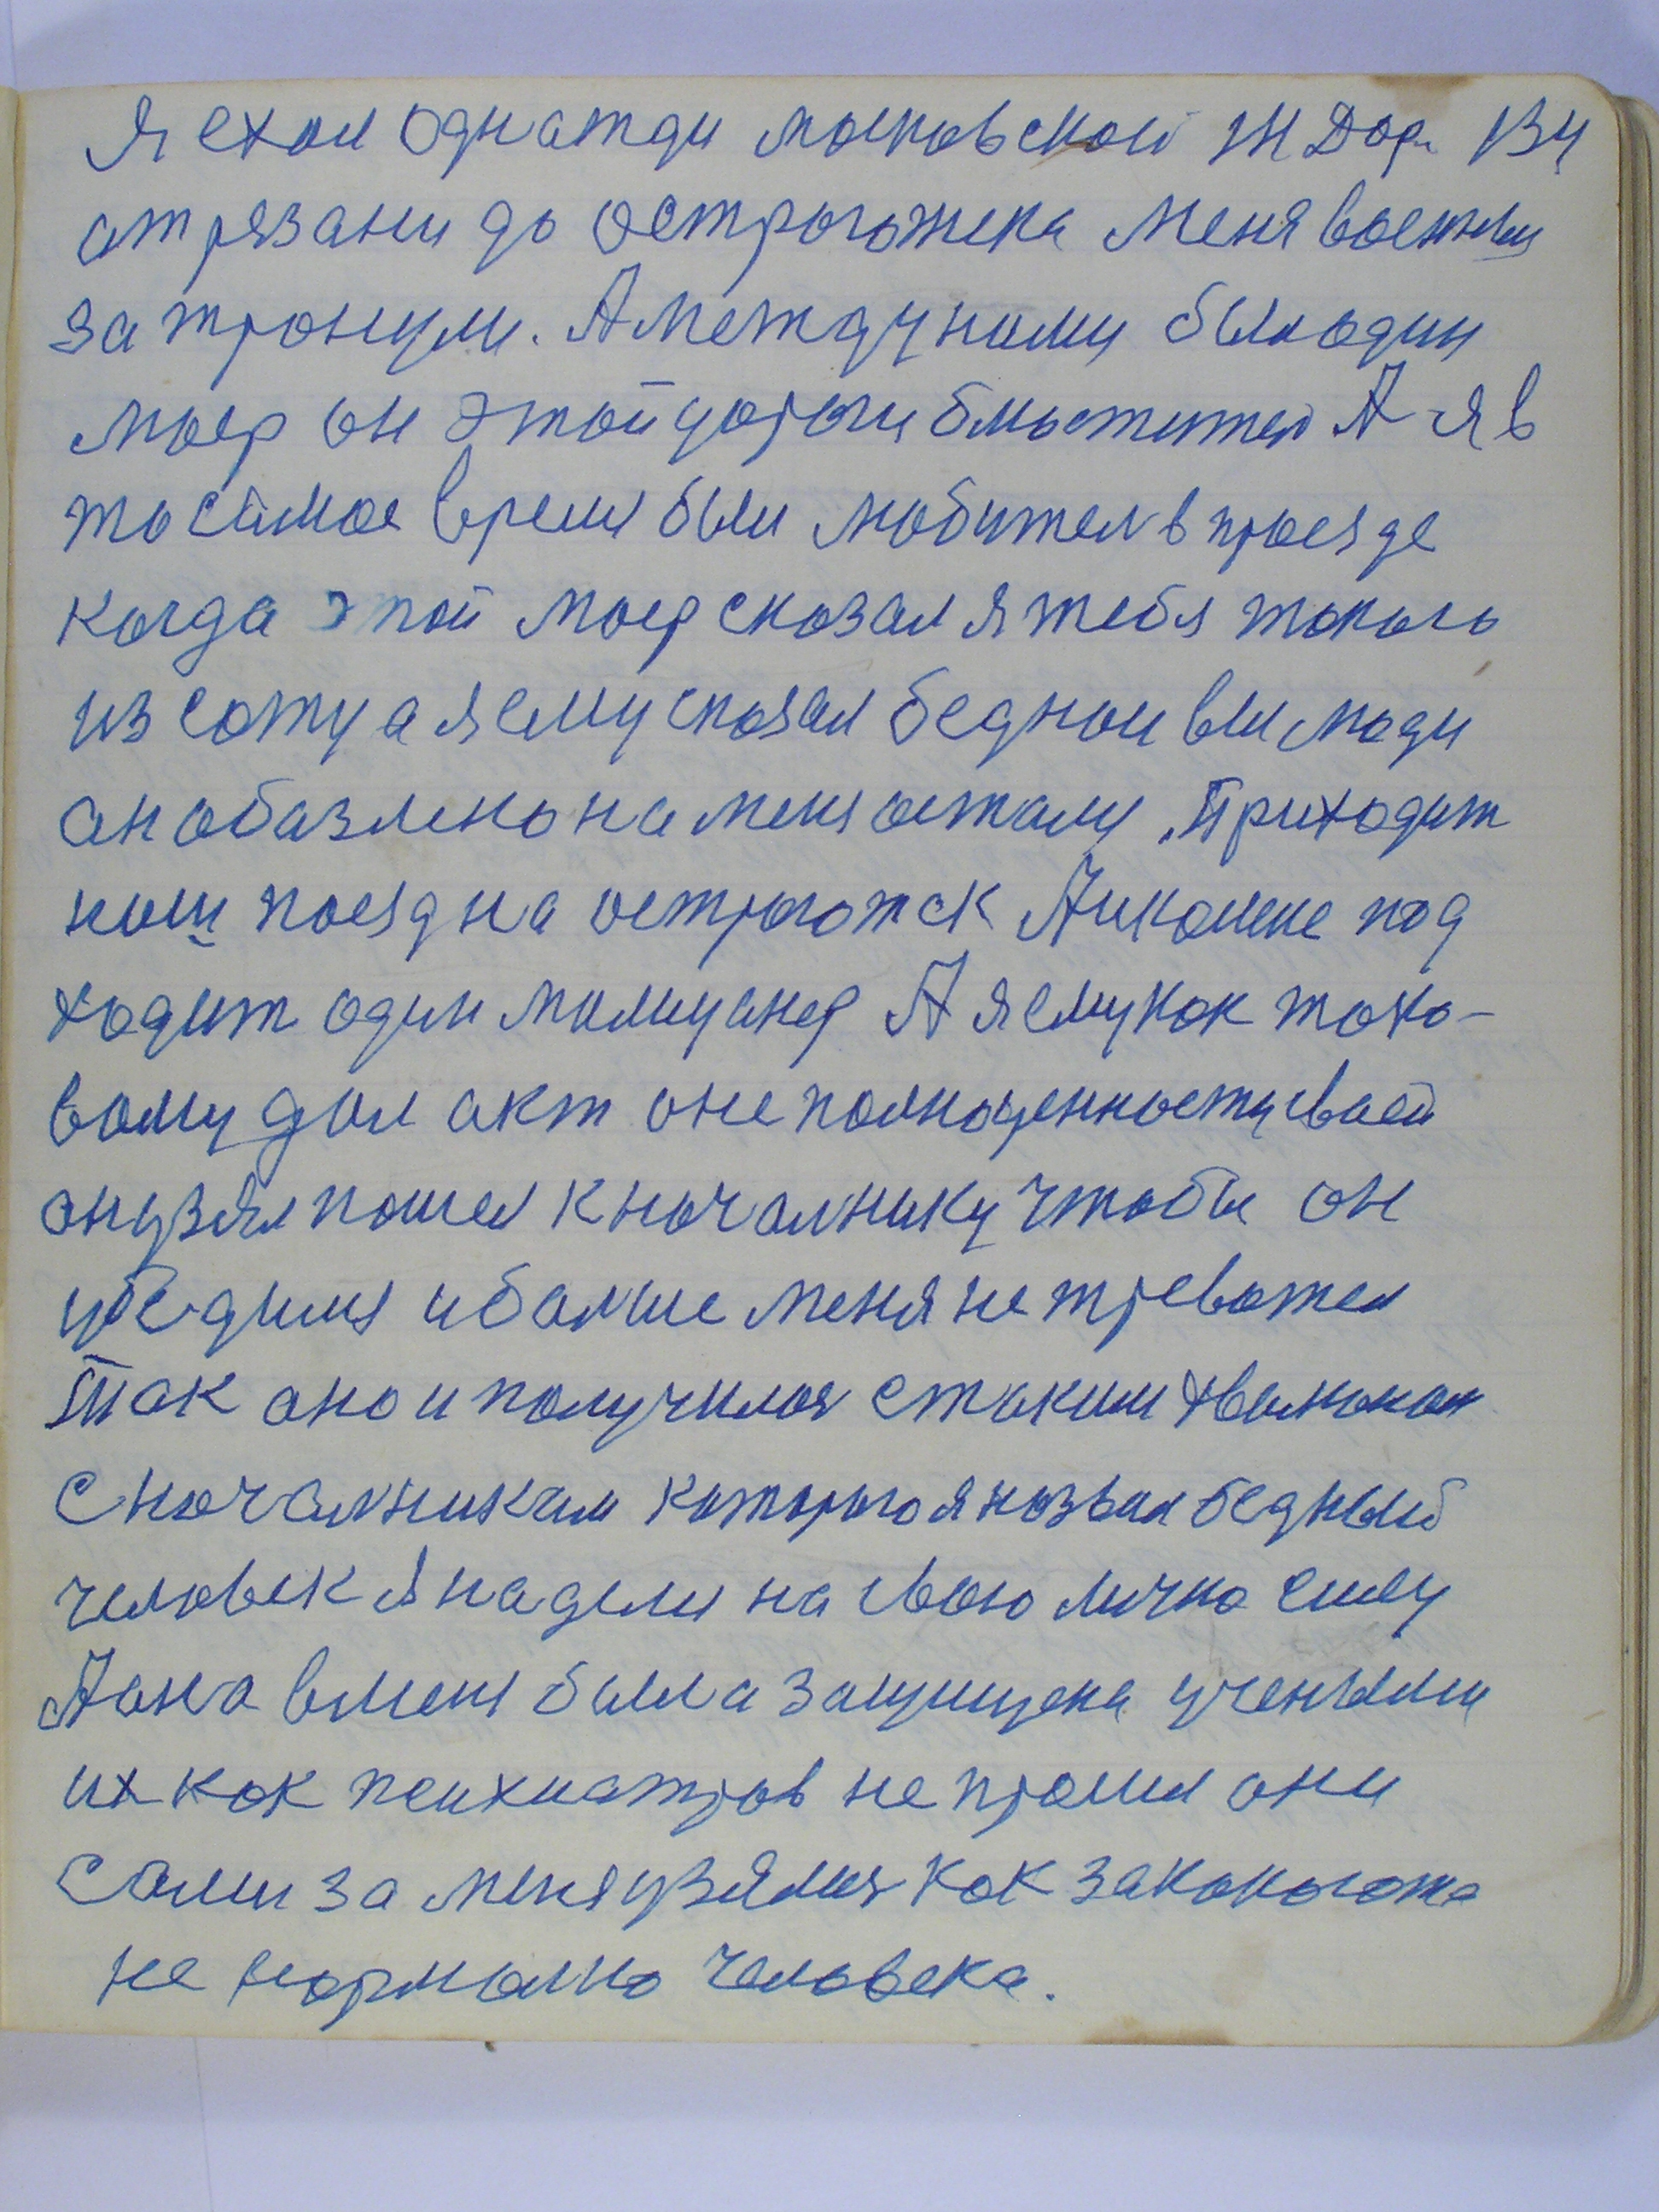 Я ехал однажди московской ЖДор.
от рязани до острогожска меня военни
за тронули. А между ними был один
моер он этой дороги блюстител А я в
то самое время был любител в проезде
когда этой моер сказал я тебя такого
из сажу а я ему сказал бедном вы люди
ано обазлено на меня остали, Приходит
наш поезд на острогожск Аик мене под
ходит один милицинер А я ему как тако-
вому дал акт о не полноценности своей
он узял пошел к началнику чтобы он
убедился и болше меня не тревожел
Так оно и получилос с таким хвалоном
с началникам каторого я назвал бедный
человек Я надеял на свою лично силу
Аона в меня была защищена учеными
их как психиатров не просил они
сами за меня узялис как законого
не нормално человека.